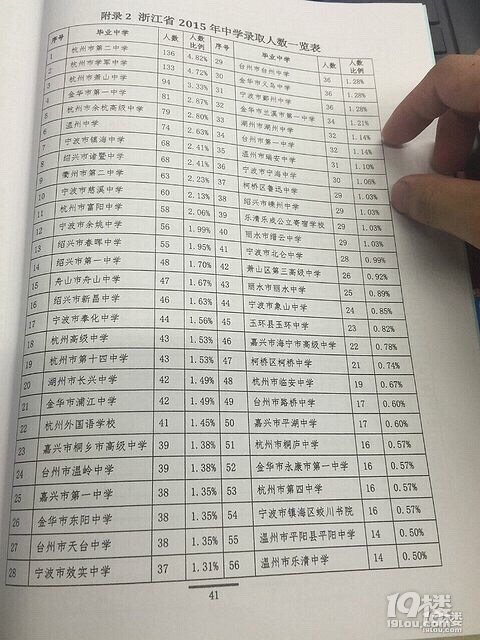 附录2 浙江省2015年中学录取人数一览表
序号 毕业中学 人数 人数比例 序号 毕业中学 人数 人数比例
1 杭州市第二中学 136 4.82% 29 台州市台州中学 36 1.28%
2 杭州市学军中学 133 4.72% 30 金华市义乌中学 36 1.28%
3 杭州市萧山中学 94 3.33% 31 宁波市鄞州中学 36 1.28%
4 金华市第一中学 81 2.87% 32 金华市兰溪市第一中学 34 1.21%
5 杭州市余杭高级中学 79 2.80% 33 湖州市湖州中学 32 1.14%
6 温州中学 74 2.63% 34 台州市第一中学 32 1.14%
7 宁波市镇海中学 68 2.41% 35 温州市瑞安中学 31 1.10%
8 绍兴市诸暨中学 68 2.41% 36 宁波市宁海中学 30 1.06%
9 衢州市第二中学 63 2.23% 37 柯桥区鲁迅中学 29 1.03%
10 宁波市慈溪中学 60 2.13% 38 绍兴市嵊州中学 29 1.03%
11 杭州市富阳中学 58 2.06% 39 乐清乐成公立寄宿学校 29 1.03%
12 宁波市余姚中学 56 1.99% 40 丽水市缙云中学 29 1.03%
13 绍兴市春晖中学 55 1.95% 41 宁波市北仑中学 28 0.99%
14 绍兴市第一中学 48 1.70% 42 萧山区第三高级中学 26 0.92%
15 舟山市舟山中学 47 1.67% 43 丽水市丽水中学 25 0.89%
16 绍兴市新昌中学 46 1.63% 44 宁波市象山中学 24 0.85%
17 宁波市奉化中学 44 1.56% 45 玉环县玉环中学 23 0.82%
18 杭州高级中学 43 1.53% 46 嘉兴市海宁市高级中学 22 0.78%
19 杭州市第十四中学 43 1.53% 47 柯桥区柯桥中学 21 0.74%
20 湖州市长兴中学 42 1.49% 48 杭州市临安中学 19 0.67%
21 金华市浦江中学 42 1.49% 49 台州市路桥中学 17 0.60%
22 杭州外国语学校 41 1.45% 50 嘉兴市平湖中学 17 0.60%
23 嘉兴市桐乡市高级中学 39 1.38% 51 杭州市桐庐中学 16 0.57%
24 台州市温岭中学 39 1.38% 52 金华市永康市第一中学 16 0.57%
25 嘉兴市第一中学 38 1.35% 53 杭州市第四中学 16 0.57%
26 金华市东阳中学 38 1.35% 54 宁波市镇海区蛟川书院 16 0.57%
27 台州市天台中学 38 1.35% 55 温州市平阳县平阳中学 14 0.50%
28 宁波市效实中学 37 1.31% 56 温州市乐清中学 14 0.50%
41
19楼
19lou.com